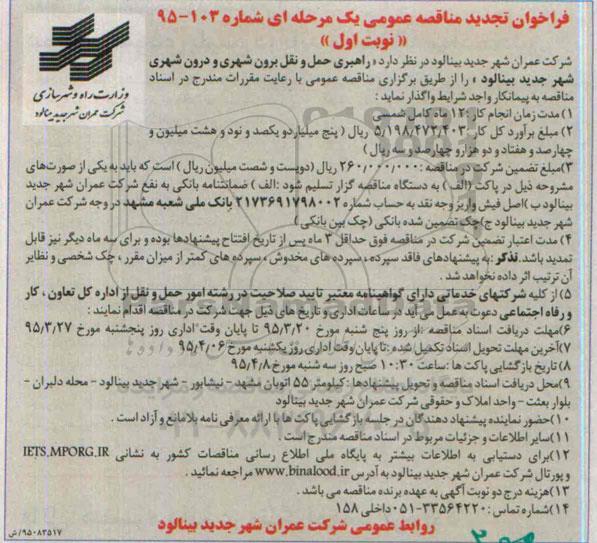 فراخوان تجدید مناقصه عمومی یک مرحله ای شماره ۱۰۳-۹۵
« نوبت اول »
وزارت راه و شهرسازی
شرکت عمران شهر جدید بینالود
شرکت عمران شهر جدید بینالود در نظر دارد « راهبری حمل و نقل برون شهری و درون شهری
شهر جدید بینالود » را از طریق برگزاری مناقصه عمومی با رعایت مقررات مندرج در اسناد
مناقصه به پیمانکار واجد شرایط واگذار نماید :
۱)مدت زمان انجام کار :۱۲ ماه کامل شمسی
۲) مبلغ برآورد کل کار :۵٫۱۹۸٫۴۷۲٫۴۰۳ ریال ( پنج میلیارد و یکصد و نود و هشت میلیون و
چهارصد و هفتاد و دو هزار و چهارصد و سه ریال )
۳)مبلغ تضمین شرکت در مناقصه :۲۶۰٫۰۰۰٫۰۰۰ ریال (دویست و شصت میلیون ریال ) است که باید به یکی از صورت‌های
مشروحه ذیل در پاکت (الف ) به دستگاه مناقصه گزار تسلیم شود :الف ) ضمانتنامه بانکی به نفع شرکت عمران شهر جدید
بینالود ب )اصل فیش واریز وجه نقد به حساب شماره ۲۱۷۳۶۹۱۷۹۸۰۰۲ بانک ملی شعبه مشهد در وجه شرکت عمران
شهر جدید بینالود ج)چک تضمین شده بانکی (چک بین بانکی )
۴) مدت اعتبار تضمین شرکت در مناقصه فوق حداقل ۳ ماه پس از تاریخ افتتاح پیشنهادها بوده و برای سه ماه دیگر نیز قابل
تمدید باشد.تذکر :به پیشنهادهای فاقد سپرده ، سپرده های مخدوش ، سپرده های کمتر از میزان مقرر ، چک شخصی و نظایر
آن ترتیب اثر داده نخواهد شد .
۵) از کلیه شرکتهای خدماتی دارای گواهینامه معتبر تایید صلاحیت در رشته امور حمل و نقل از اداره کل تعاون ، کار
و رفاه اجتماعی دعوت به عمل می آید در ساعات اداری و تاریخ های ذیل جهت شرکت در مناقصه اقدام نمایند :
۶)مهلت دریافت اسناد مناقصه :از روز پنج شنبه مورخ ۹۵/۳/۲۰ تا پایان وقت اداری روز پنجشنبه مورخ ۹۵/۳/۲۷
۷)آخرین مهلت تحویل اسناد تکمیل شده :تا پایان وقت اداری روز یکشنبه مورخ ۹۵/۴/۰۶
۸) تاریخ بازگشایی پاکت ها :ساعت ۱۰:۳۰ صبح روز سه شنبه مورخ ۹۵/۴/۸
۹)محل دریافت اسناد مناقصه و تحویل پیشنهادها : کیلومتر ۵۵ اتوبان مشهد – نیشابور – شهر جدید بینالود – محله دلبران –
بلوار بعثت – واحد املاک و حقوقی شرکت عمران شهر جدید بینالود
۱۰)حضور نماینده پیشنهاد دهندگان در جلسه بازگشایی پاکت ها با ارائه معرفی نامه بلامانع و آزاد است .
۱۱)سایر اطلاعات و جزئیات مربوط در اسناد مناقصه مندرج است .
۱۲)برای دستیابی به اطلاعات بیشتر به پایگاه ملی اطلاع رسانی مناقصات کشور به نشانی IETS.MPORG.IR
و پورتال شرکت عمران شهر جدید بینالود به آدرس www.binalood.ir مراجعه نمائید .
۱۳)هزینه درج دو نوبت آگهی به عهده برنده مناقصه می باشد .
۱۴)شماره تماس : ۳۳۵۶۴۲۲۰-۰۵۱ داخلی ۱۵۸
روابط عمومی شرکت عمران شهر جدید بینالود
۹۵۰۸۳۵۱۷/ش